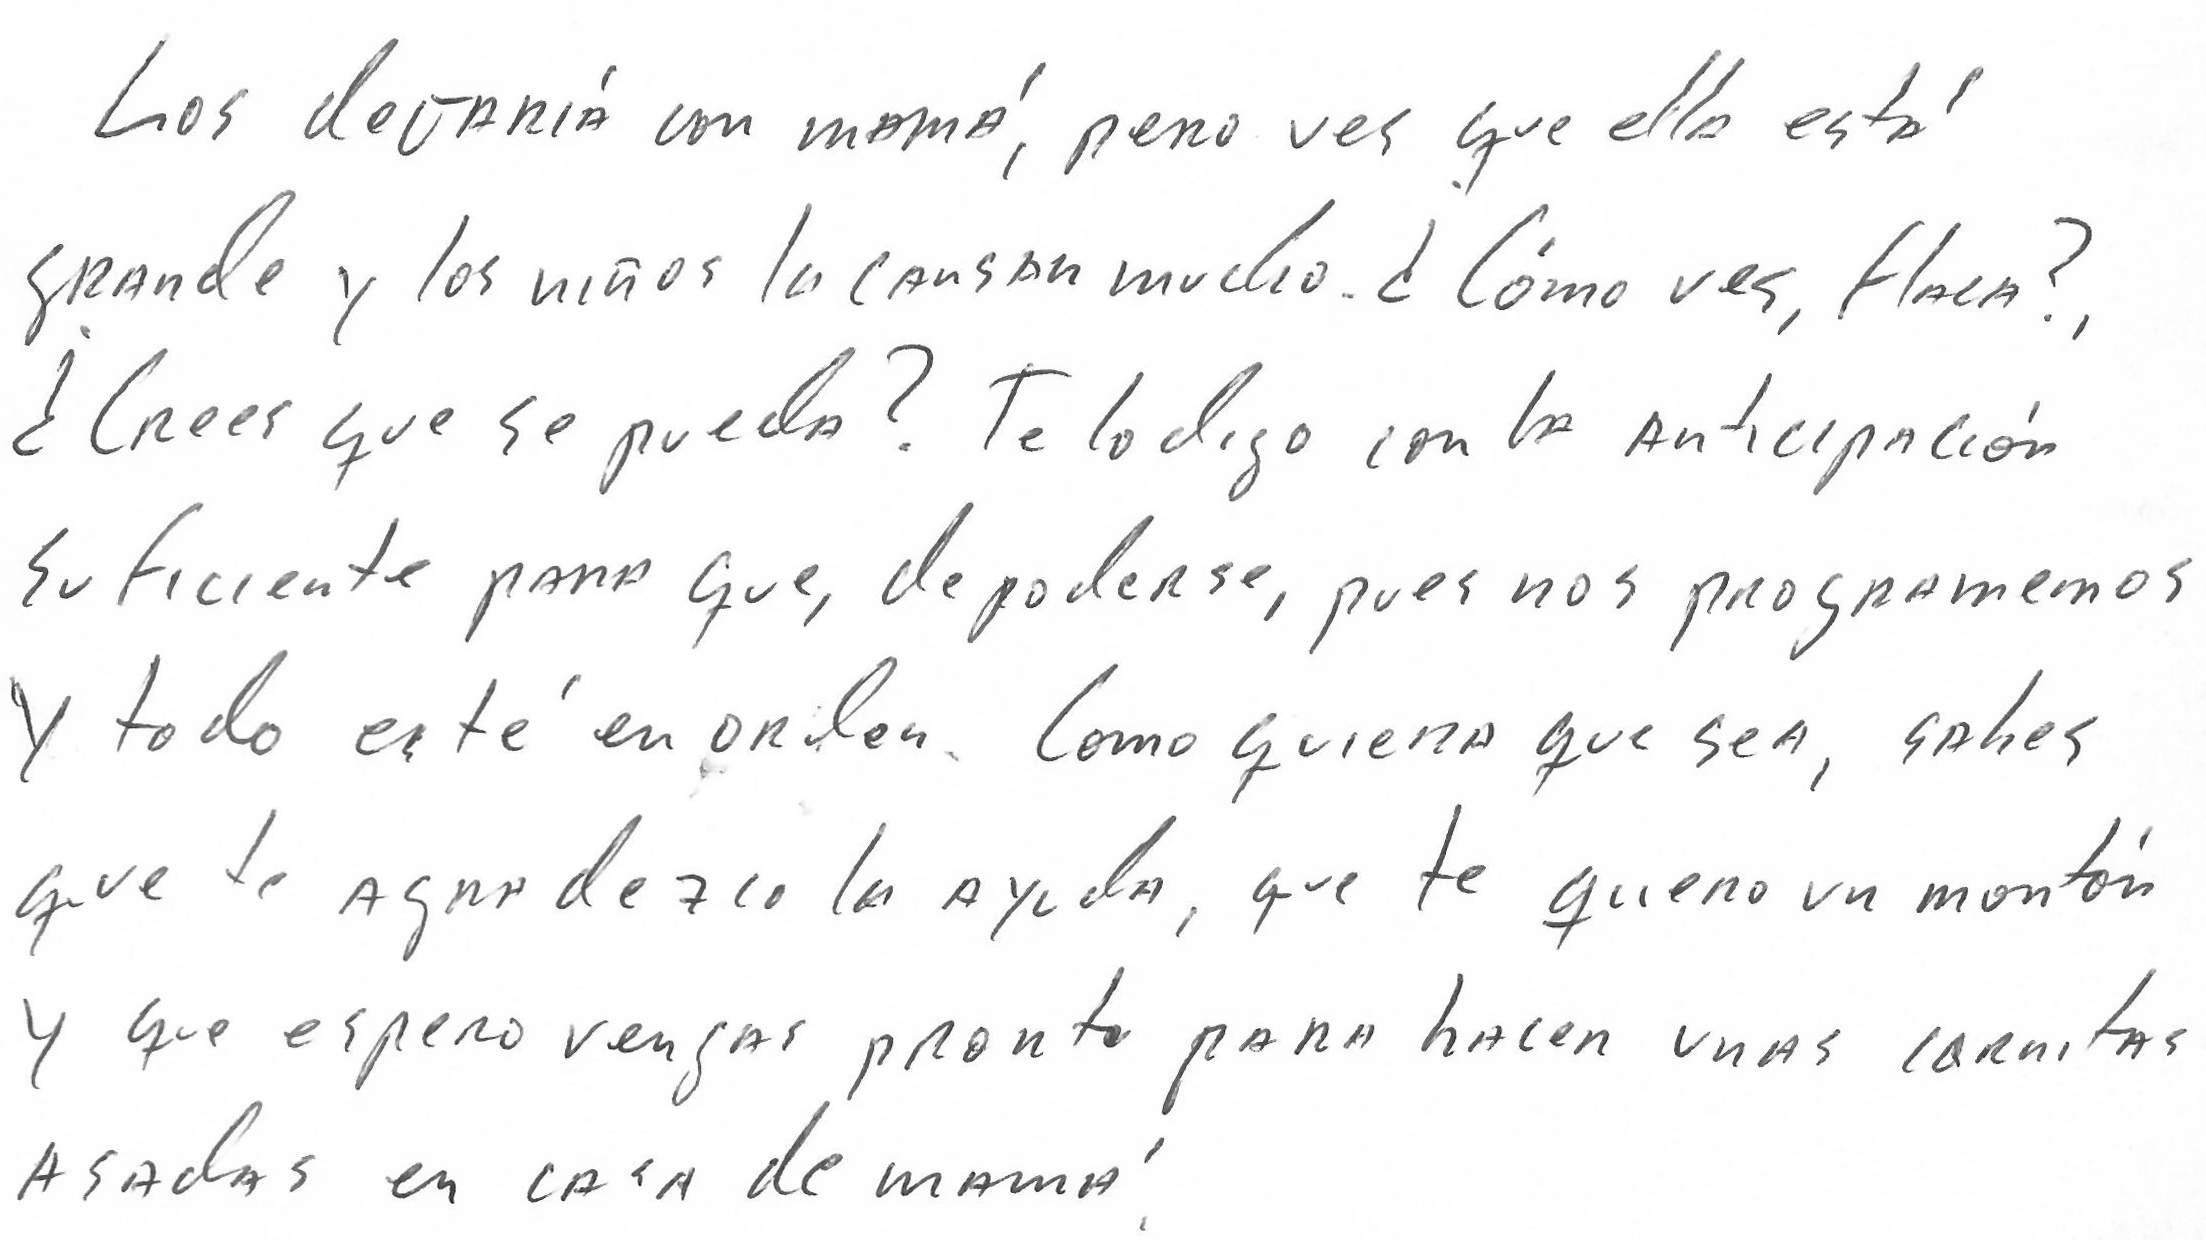 Los dejaría con mamá, pero ves que ella está
grande y los niños la cansan mucho. ¿Cómo ves, flaca?,
¿Crees que se pueda? Te lo digo con la anticipación
suficiente para que, de poderse, pues nos programemos
y todo esté en orden. Como quiera que sea, sabes
que te agradezco la ayuda, que te quiero un montón
y que espero vengas pronto para hacer unas carnitas
asadas en casa de mamá.